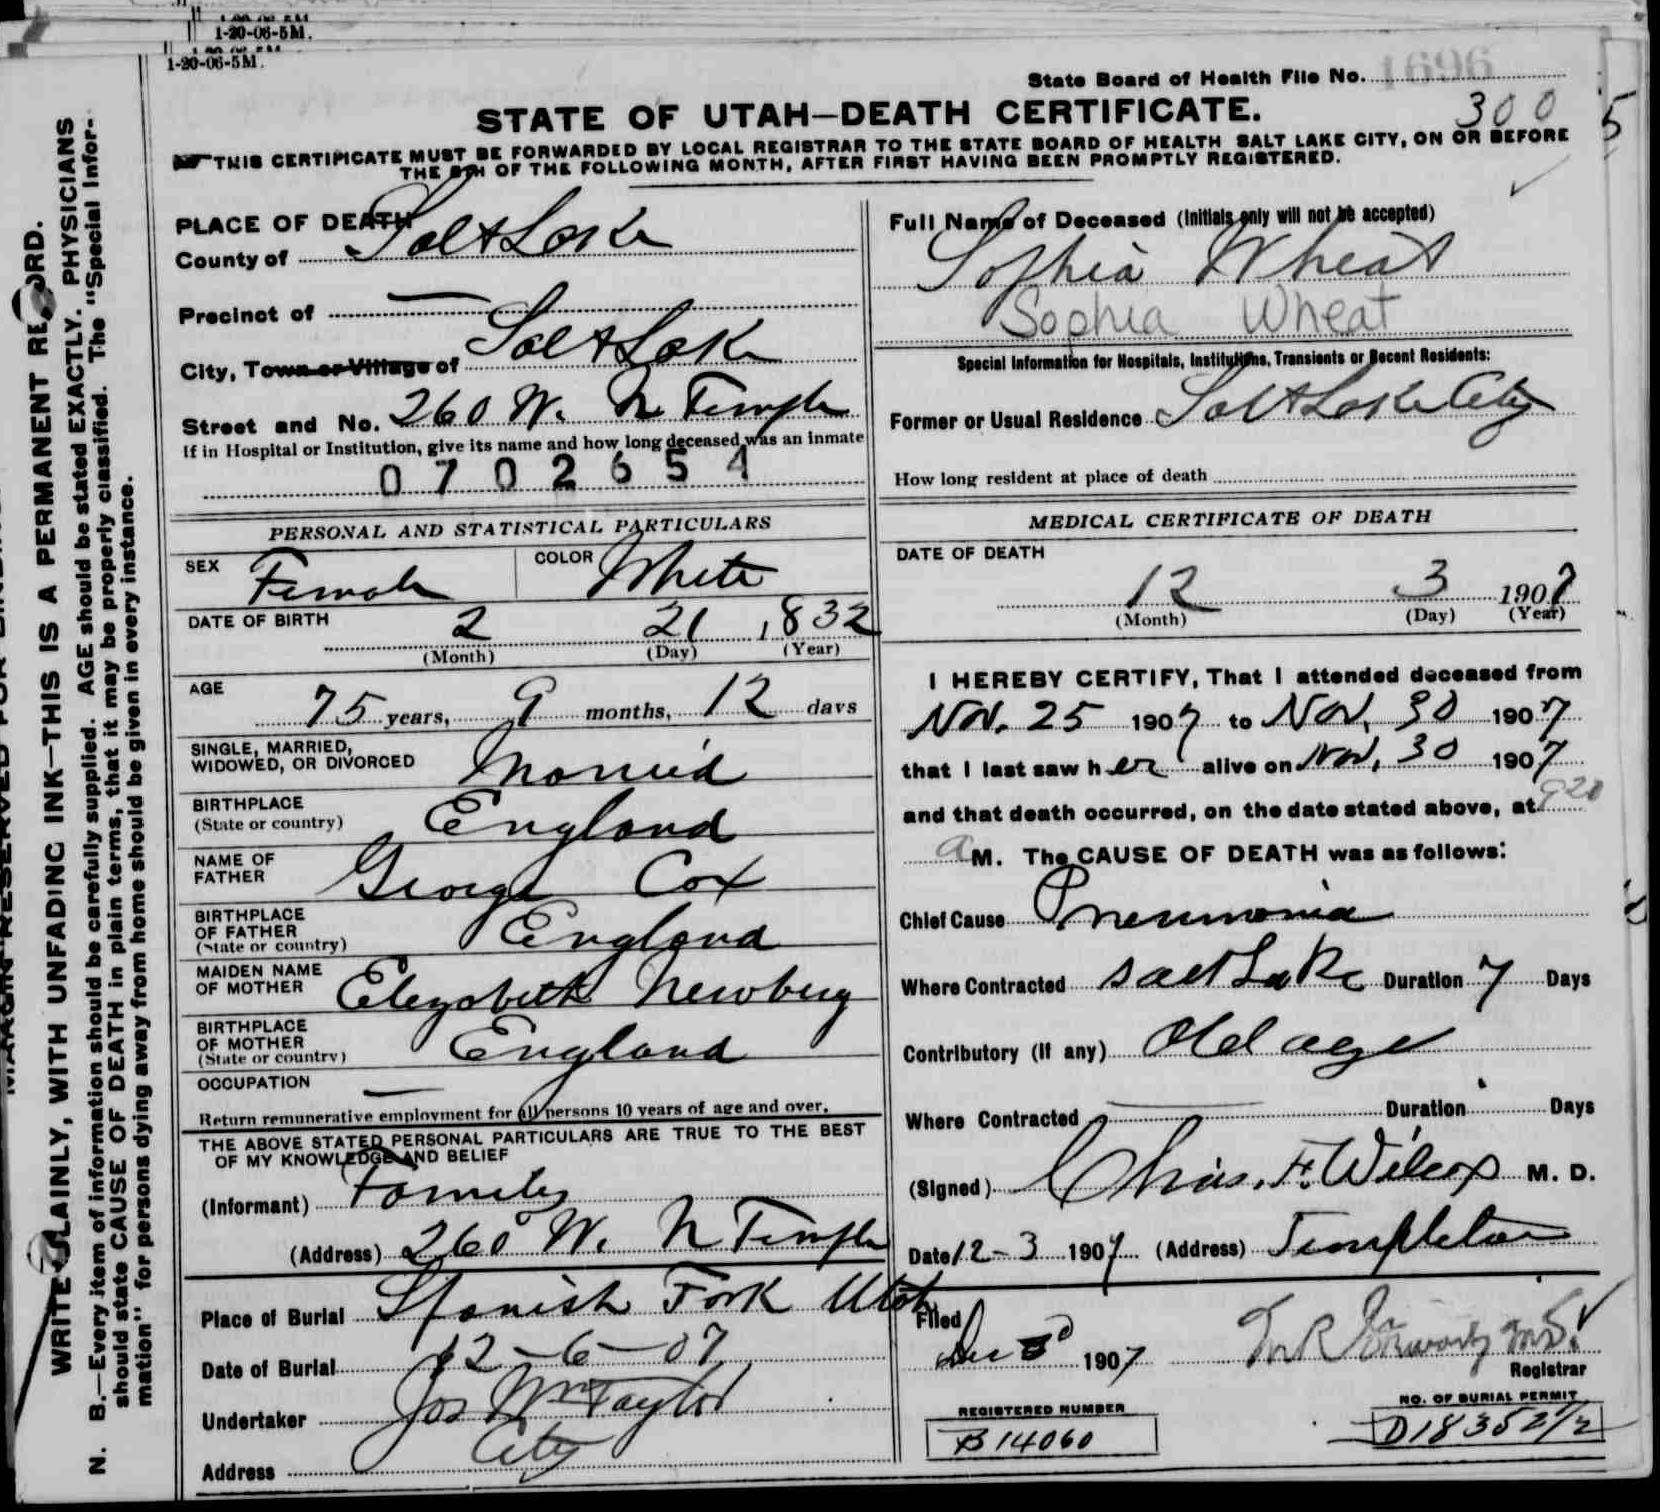 1-20-06-5M.
1-20-06-5M.
State Board of Health File No. 1696
300
5
STATE OF UTAH—DEATH CERTIFICATE.
THIS CERTIFICATE MUST BE FORWARDED BY LOCAL REGISTRAR TO THE STATE BOARD OF HEALTH SALT LAKE CITY, ON OR BEFORE
THE 5TH OF THE FOLLOWING MONTH, AFTER FIRST HAVING BEEN PROMPTLY REGISTERED.
WRITE PLAINLY, WITH UNFADING INK—THIS IS A PERMANENT RECORD.
N. B.—Every item of information should be carefully supplied. AGE should be stated EXACTLY. PHYSICIANS
should state CAUSE OF DEATH in plain terms, that it may be properly classified. The "Special Infor-
mation" for persons dying away from home should be given in every instance.
PLACE OF DEATH
County of Salt Lake
Precinct of —
City, Town or Village of Salt Lake
Street and No. 260 W. N Temple
If in Hospital or Institution, give its name and how long deceased was an inmate
0702654
PERSONAL AND STATISTICAL PARTICULARS
SEX Female COLOR White
DATE OF BIRTH 2 21 1832
(Month) (Day) (Year)
AGE 75 years, 9 months, 12 days
SINGLE, MARRIED,
WIDOWED, OR DIVORCED Married
BIRTHPLACE
(State or country) England
NAME OF
FATHER George Cox
BIRTHPLACE
OF FATHER
(State or country) England
MAIDEN NAME
OF MOTHER Elizabeth Newbery
BIRTHPLACE
OF MOTHER
(State or country) England
OCCUPATION —
Return remunerative employment for all persons 10 years of age and over.
THE ABOVE STATED PERSONAL PARTICULARS ARE TRUE TO THE BEST
OF MY KNOWLEDGE AND BELIEF
(Informant) Family
(Address) 260 W. N Temple
Place of Burial Spanish Fork Utah
Date of Burial 12-6-07
Undertaker Jos Wm Taylor
Address City
Full Name of Deceased (Initials only will not be accepted)
Sophia Wheat
Sophia Wheat
Special Information for Hospitals, Institutions, Transients or Recent Residents:
Former or Usual Residence Salt Lake City
How long resident at place of death
MEDICAL CERTIFICATE OF DEATH
DATE OF DEATH
12 3 1907
(Month) (Day) (Year)
I HEREBY CERTIFY, That I attended deceased from
Nov. 25 1907 to Nov. 30 1907
that I last saw her alive on Nov. 30 1907
and that death occurred, on the date stated above, at 920
a M. The CAUSE OF DEATH was as follows:
Chief Cause Pneumonia
Where Contracted Salt Lake Duration 7 Days
Contributory (if any) Old age
Where Contracted — Duration Days
(Signed) Chas. F. Wilcox M. D.
Date 12-3 1907 (Address) Templeton
Filed
Dec 3 1907
Registrar
REGISTERED NUMBER
B 14060
NO. OF BURIAL PERMIT
D18352 1/2